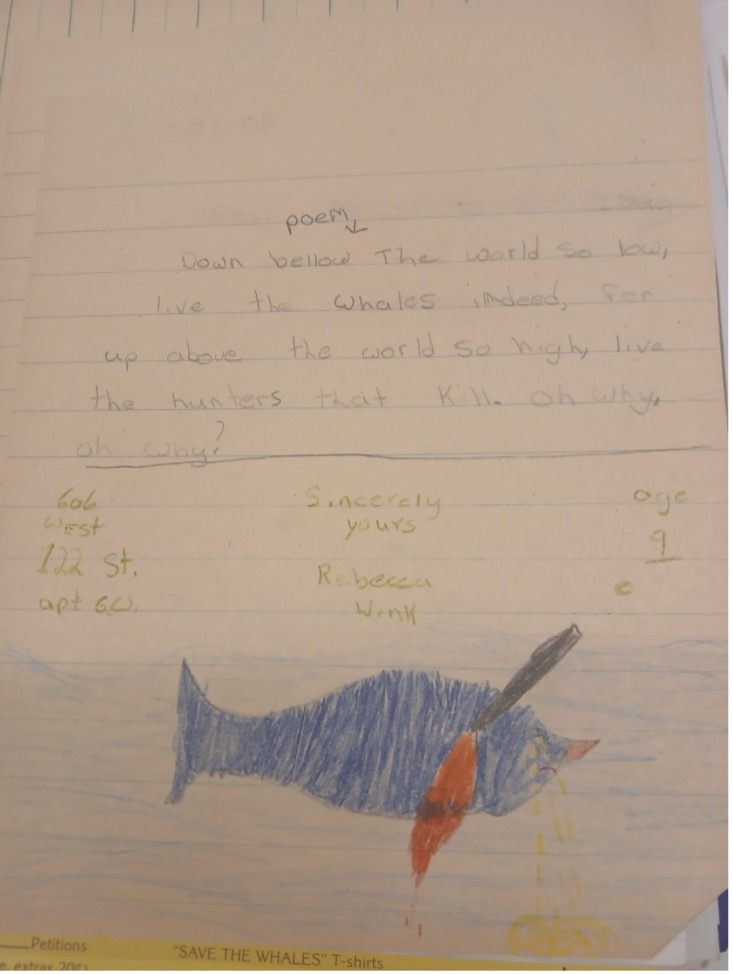 poem
Down bellow The world so low,
live the whales indeed, for
up above the world so high, live
the hunters that kill. oh why,
oh why?
606 Sincerely age
West yours 9
122 St. Rebecca
apt 6.W. Wink
Petitions "SAVE THE WHALES" T-shirts
extras 20¢)